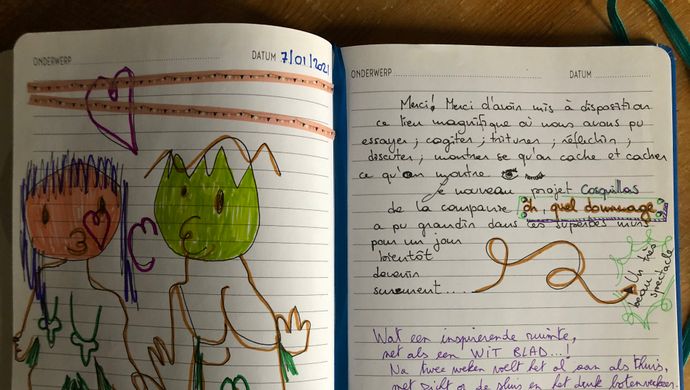 ONDERWERP DATUM 7/01/2021
ONDERWERP DATUM
Merci! Merci d'avoir mis à disposition
ce lieu magnifique où nous avons pu
essayer; cogiter; triturer; réfléchir;
discuter; montrer ce qu'on cache et cacher
ce qu'on montre
Le nouveau projet Cosquillas
de la compagnie Oh, quel dommage
a pu grandir dans ces superbes murs
pour un jour
bientôt
devenir
surement....
Un très
beau
spectacle
Wat een inspirerende ruimte,
net als een WIT BLAD...!
Na twee weken voelt het al aan als thuis,
met zicht op de sluis en het druk botenverkeer